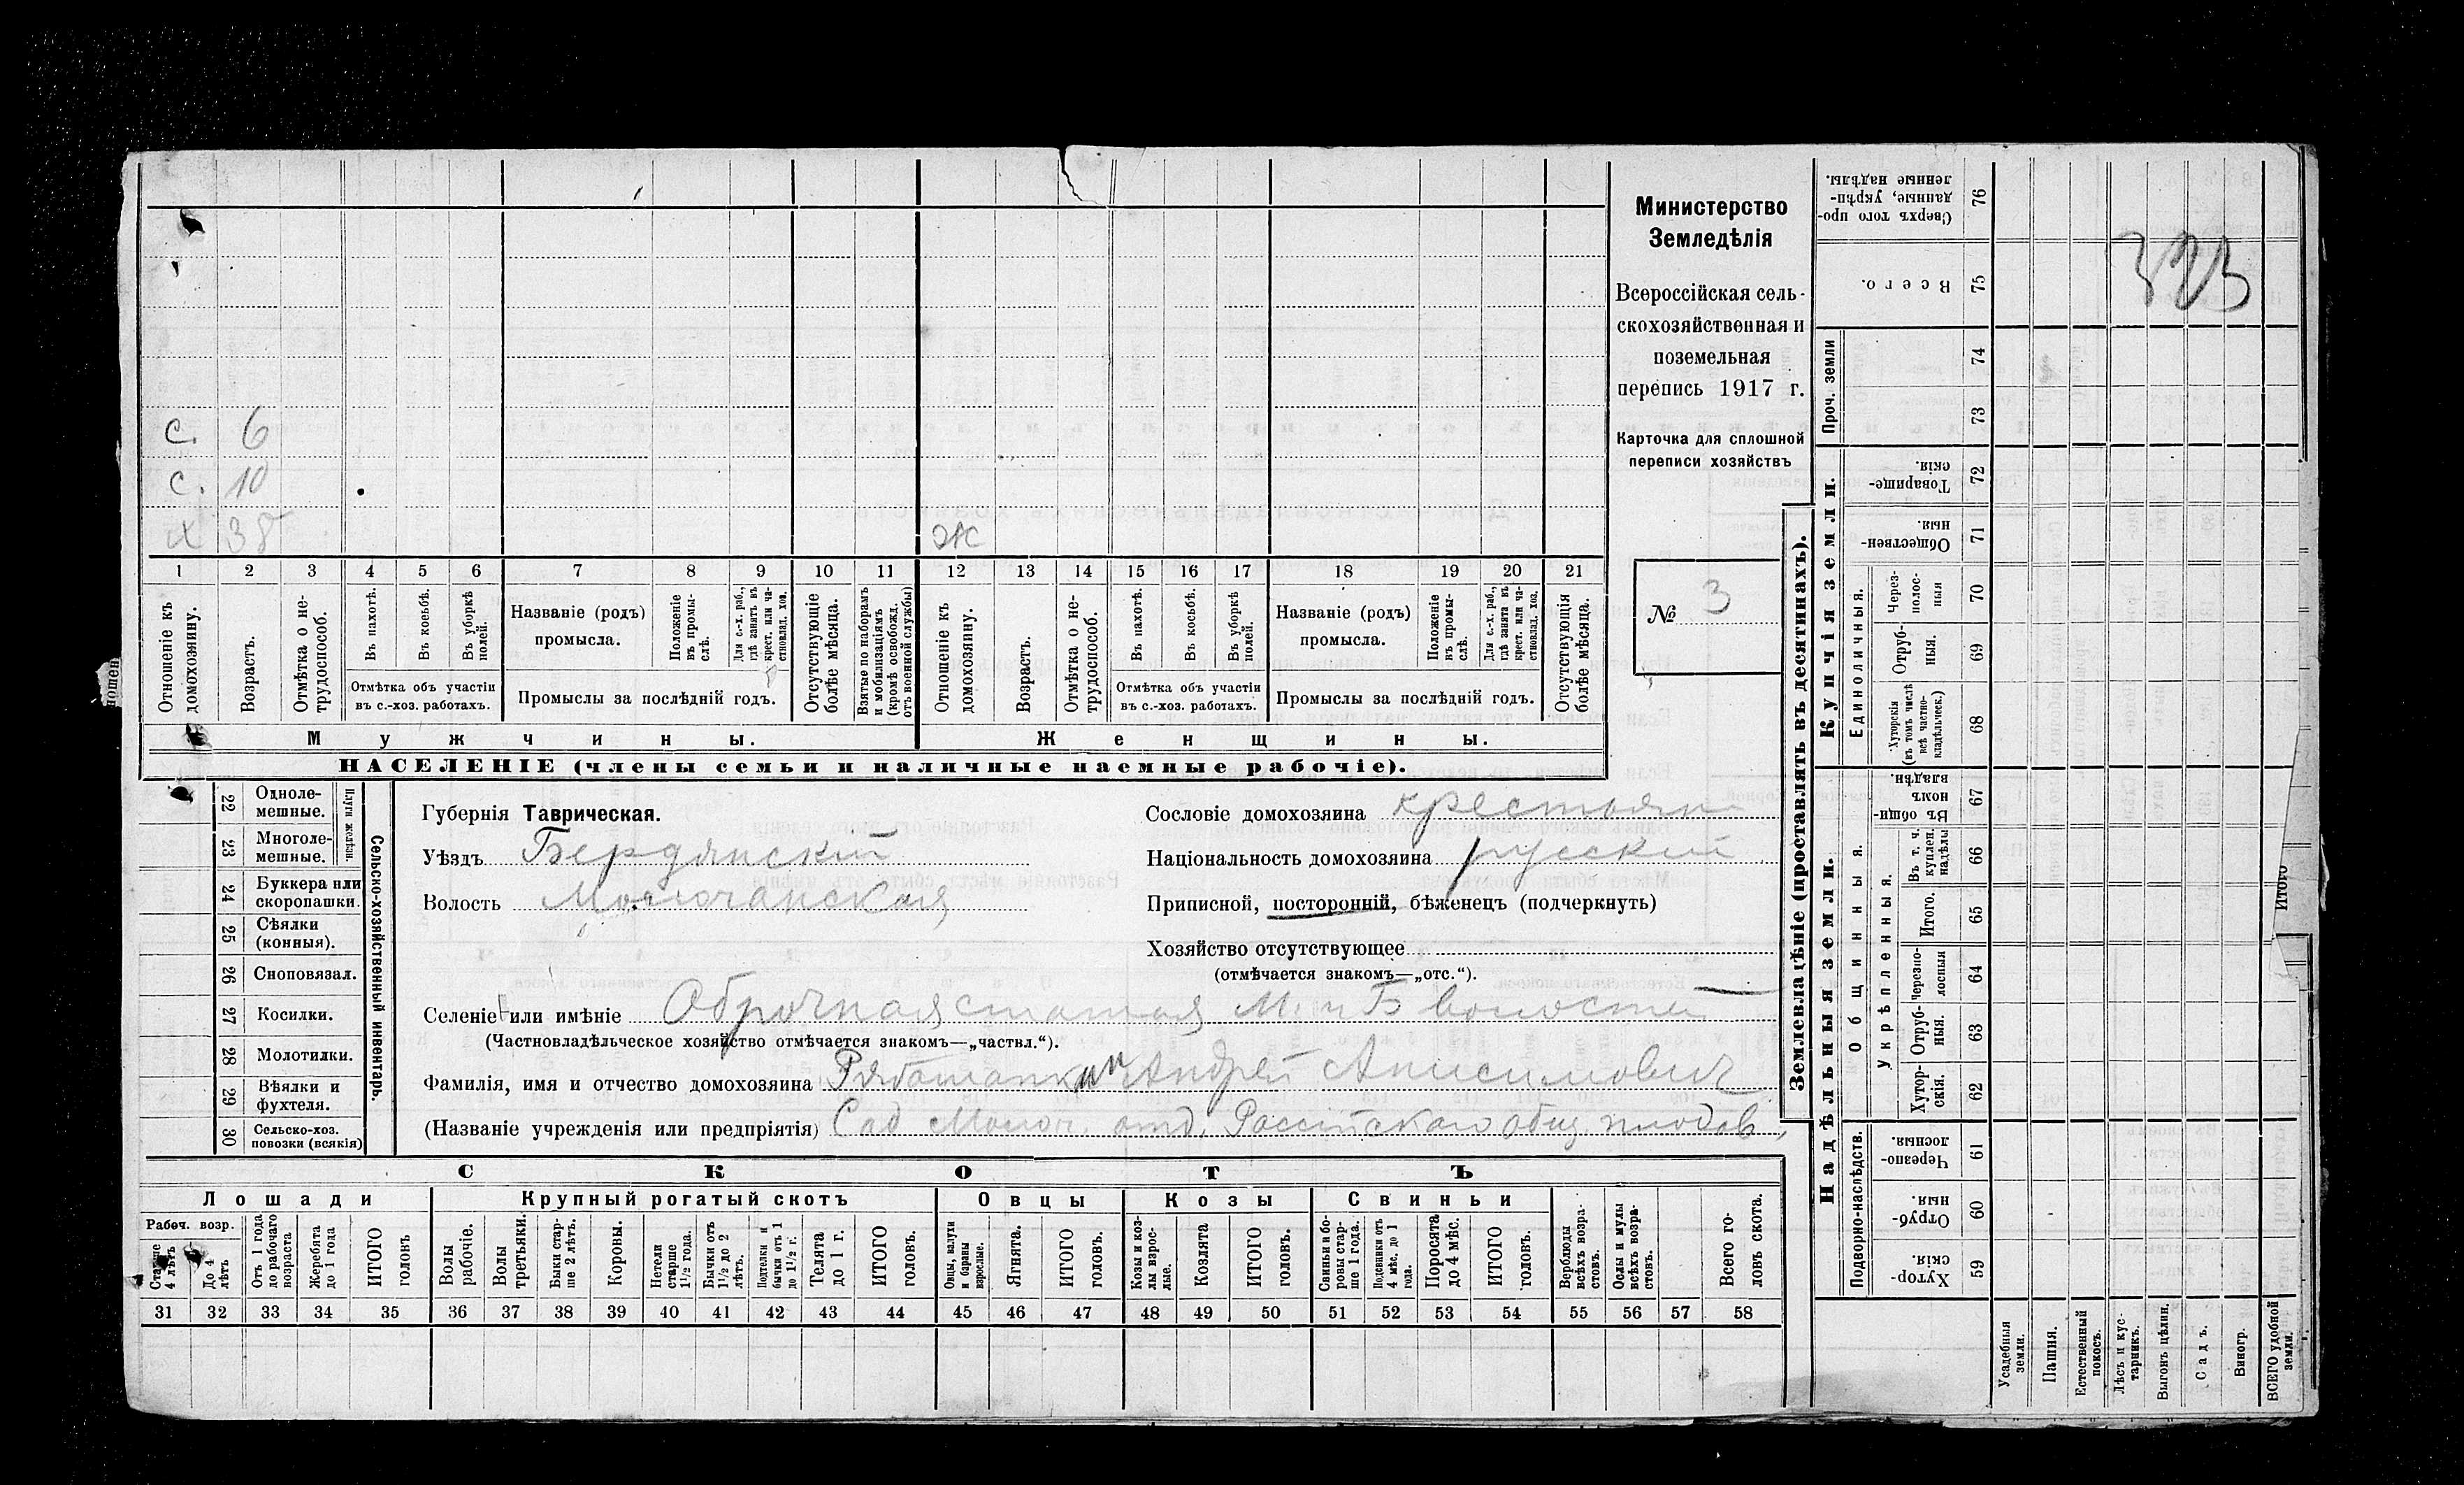 с. 6
с. 10
х 38 ж
1 2 3 4 5 6 7 8 9 10 11 12 13 14 15 16 17 18 19 20 21
Отношеніе къ домохозяину.
Возрастъ.
Отмѣтка о не-трудоспособ.
Въ пахотѣ.
Въ косьбѣ.
Въ уборкѣ полей.
Отмѣтка объ участіи
въ с.-хоз. работахъ.
Названіе (родъ)
промысла.
Положеніе въ промы-слѣ.
Для с.-х. раб., гдѣ занятъ въ крест. или ча-стновлад. хоз.
Промыслы за послѣдній годъ.
Отсутствующіе болѣе мѣсяца.
Взятые по наборамъ и мобилизаціямъ (кромѣ освобожд. отъ военной службы)
Отношеніе къ домохозяину.
Возрастъ.
Отмѣтка о не-трудоспособ.
Въ пахотѣ.
Въ косьбѣ.
Въ уборкѣ полей.
Отмѣтка объ участіи
въ с.-хоз. работахъ.
Названіе (родъ)
промысла.
Положеніе въ промы-слѣ.
Для с.-х. раб., гдѣ занята въ крест. или ча-стновлад. хоз.
Промыслы за послѣдній годъ.
Отсутствующія болѣе мѣсяца.
Мужчины. Женщины.
НАСЕЛЕНІЕ (члены семьи и наличные наемные рабочіе).
Министерство
Земледѣлія
Всероссійская сель-
скохозяйственная и
поземельная
перепись 1917 г.
Карточка для сплошной
переписи хозяйствъ
№ 3
22 Одноле-мешные.
23 Многоле-мешные.
Плуги желѣзн.
24 Буккера или скоропашки.
25 Сѣялки (конныя).
26 Сноповязал.
27 Косилки.
28 Молотилки.
29 Вѣялки и фухтеля.
30 Сельско-хоз. повозки (всякія)
Сельско-хозяйственный инвентарь.
Губернія Таврическая.
Уѣздъ Бердянский
Волость Молочанская
Сословіе домохозяина крестьян
Національность домохозяина русский
Приписной, посторонній, бѣженецъ (подчеркнуть)
Хозяйство отсутствующее
(отмѣчается знакомъ—„отс.“).
Селеніе или имѣніе Оброчная статья М. и Б волостей
(Частновладѣльческое хозяйство отмѣчается знакомъ—„частвл.“).
Фамилія, имя и отчество домохозяина Андрей Анисимович
(Названіе учрежденія или предпріятія) Сад Молоч. отд. Российскаго общ. плодов.
СКОТЪ
Лошади Крупный рогатый скотъ Овцы Козы Свиньи
Рабоч. возр.
Старше 4 лѣтъ
До 4 лѣтъ
Отъ 1 года до рабочаго возраста
Жеребята до 1 года
ИТОГО головъ
Волы рабочіе.
Волы третьяки.
Быки стар-ше 2 лѣтъ.
Коровы.
Нетели старше 1½ года.
Бычки отъ 1½ до 2 лѣтъ.
Подтелки и бычки отъ 1 до 1½ г.
Телята до 1 г.
ИТОГО головъ.
Овцы, валухи и бараны взрослые.
Ягнята.
ИТОГО головъ.
Козы и коз-лы взрос-лые.
Козлята
ИТОГО головъ.
Свиньи и бо-ровы стар-ше 1 года.
Подсвинки отъ 4 мѣс. до 1 года.
Поросята до 4 мѣс.
ИТОГО головъ.
Верблюды всѣхъ возра-стовъ.
Ослы и мулы всѣхъ возра-стовъ.
Всего го-ловъ скота.
31 32 33 34 35 36 37 38 39 40 41 42 43 44 45 46 47 48 49 50 51 52 53 54 55 56 57 58
Землевладѣніе (проставлять въ десятинахъ).
Сверхъ того про-данные, укрѣп-ленные надѣлы. 76
Всего. 75
Проч. земли
74
73
Купчія земли.
Товарище-скія. 72
Обществен-ныя. 71
Единоличныя.
Через-полос-ныя 70
Отруб-ныя. 69
Хуторскія (въ томъ числѣ всѣ частно-владѣльческ.) 68
Надѣльныя земли.
Общинныя.
Въ общи-номъ владѣн. 67
Укрѣпленныя.
Въ т. ч. куплен. надѣлы 66
Итого. 65
Черезпо-лосныя 64
Отруб-ныя. 63
Хутор-скія. 62
Подворно-наслѣдств.
Черезпо-лосныя. 61
Отруб-ныя. 60
Хутор-скія. 59
Усадебныя земли.
Пашня.
Естественный покосъ.
Лѣсъ и кус-тарникъ.
Выгонъ цѣлин.
Садъ.
Виногр.
ВСЕГО удобной земли.
323
Итого